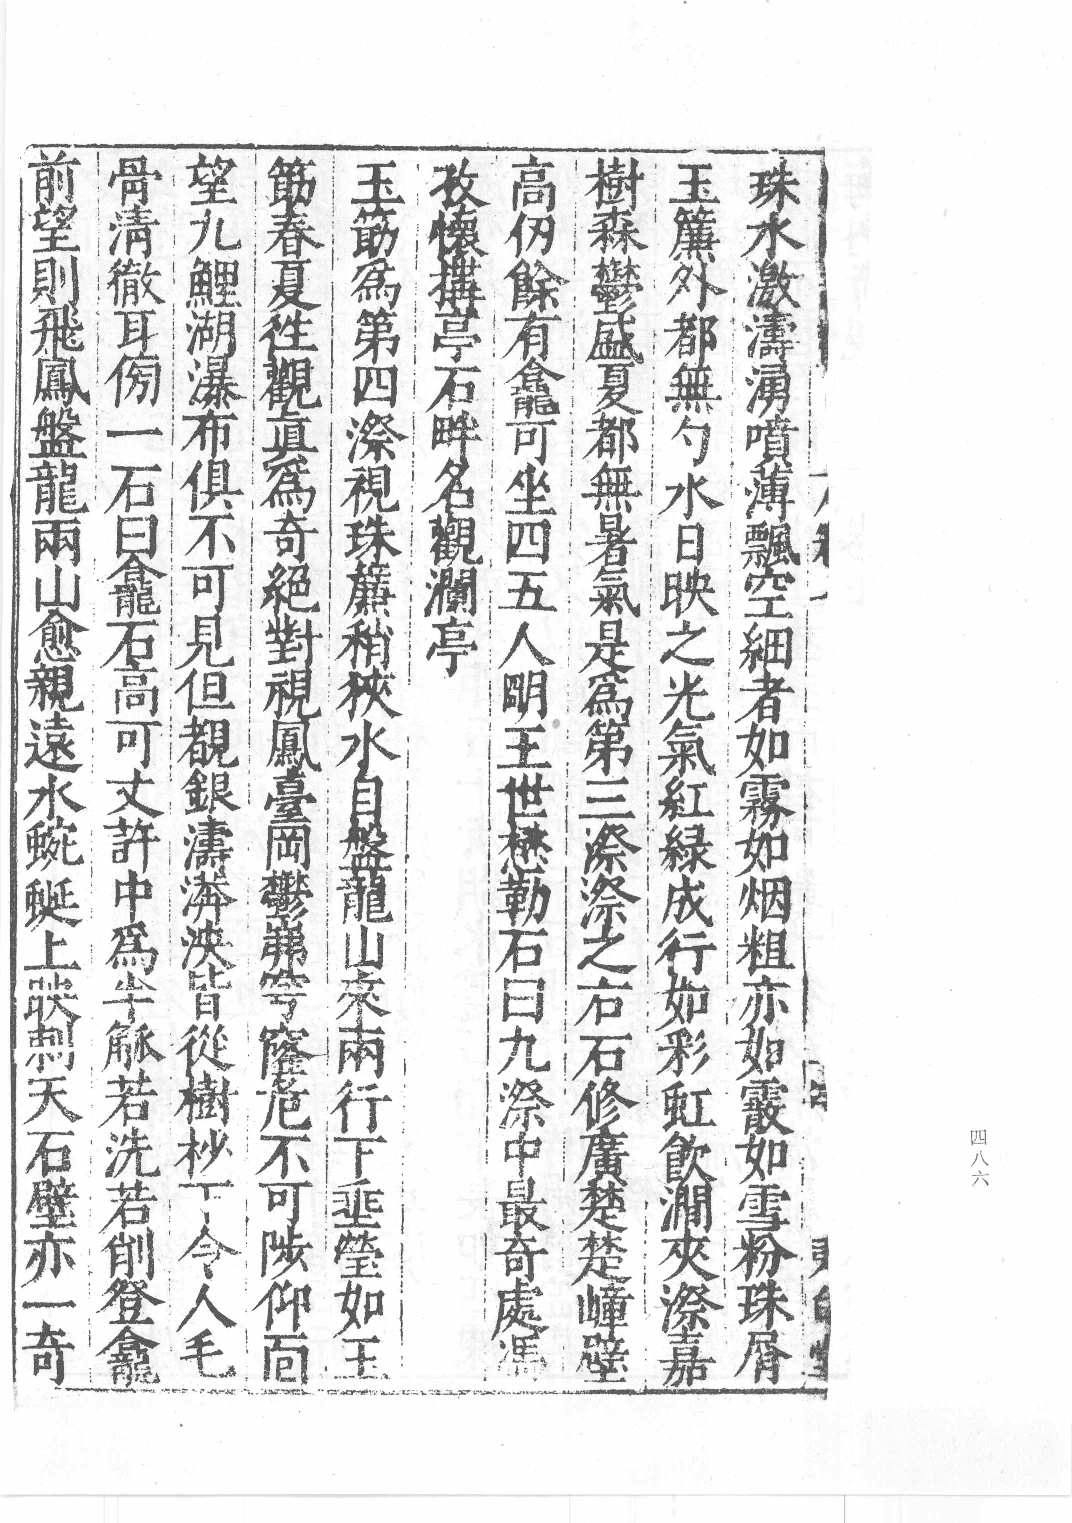 珠水激濤湧噴薄飄空細者如霧如烟粗亦如霰如雪粉珠屑
玉簾外都無勺水日映之光氣紅緑成行如彩虹飲澗夾漈嘉
樹森鬱盛夏都無暑氣是爲第三漈漈之右石修廣楚楚嶂壁
高仞餘有龕可坐四五人明王世懋勒石曰九漈中最奇處馮
孜懷搆亭石畔名觀瀾亭
玉筯爲第四漈視珠簾稍狹水自盤龍山來兩行下埀瑩如玉
筯春夏徃觀眞爲奇絕對視鳳臺岡鬱巋穹窿危不可陟仰面
望九鯉湖瀑布俱不可見但覩銀濤渀泱皆從樹杪丁令人毛
骨清徹耳傍一石曰龕龍石高可丈許中爲半觚若洗若削登龕
前望則飛鳳盤龍兩山愈親遠水蜿蜒上映刺天石壁亦一奇
四八六